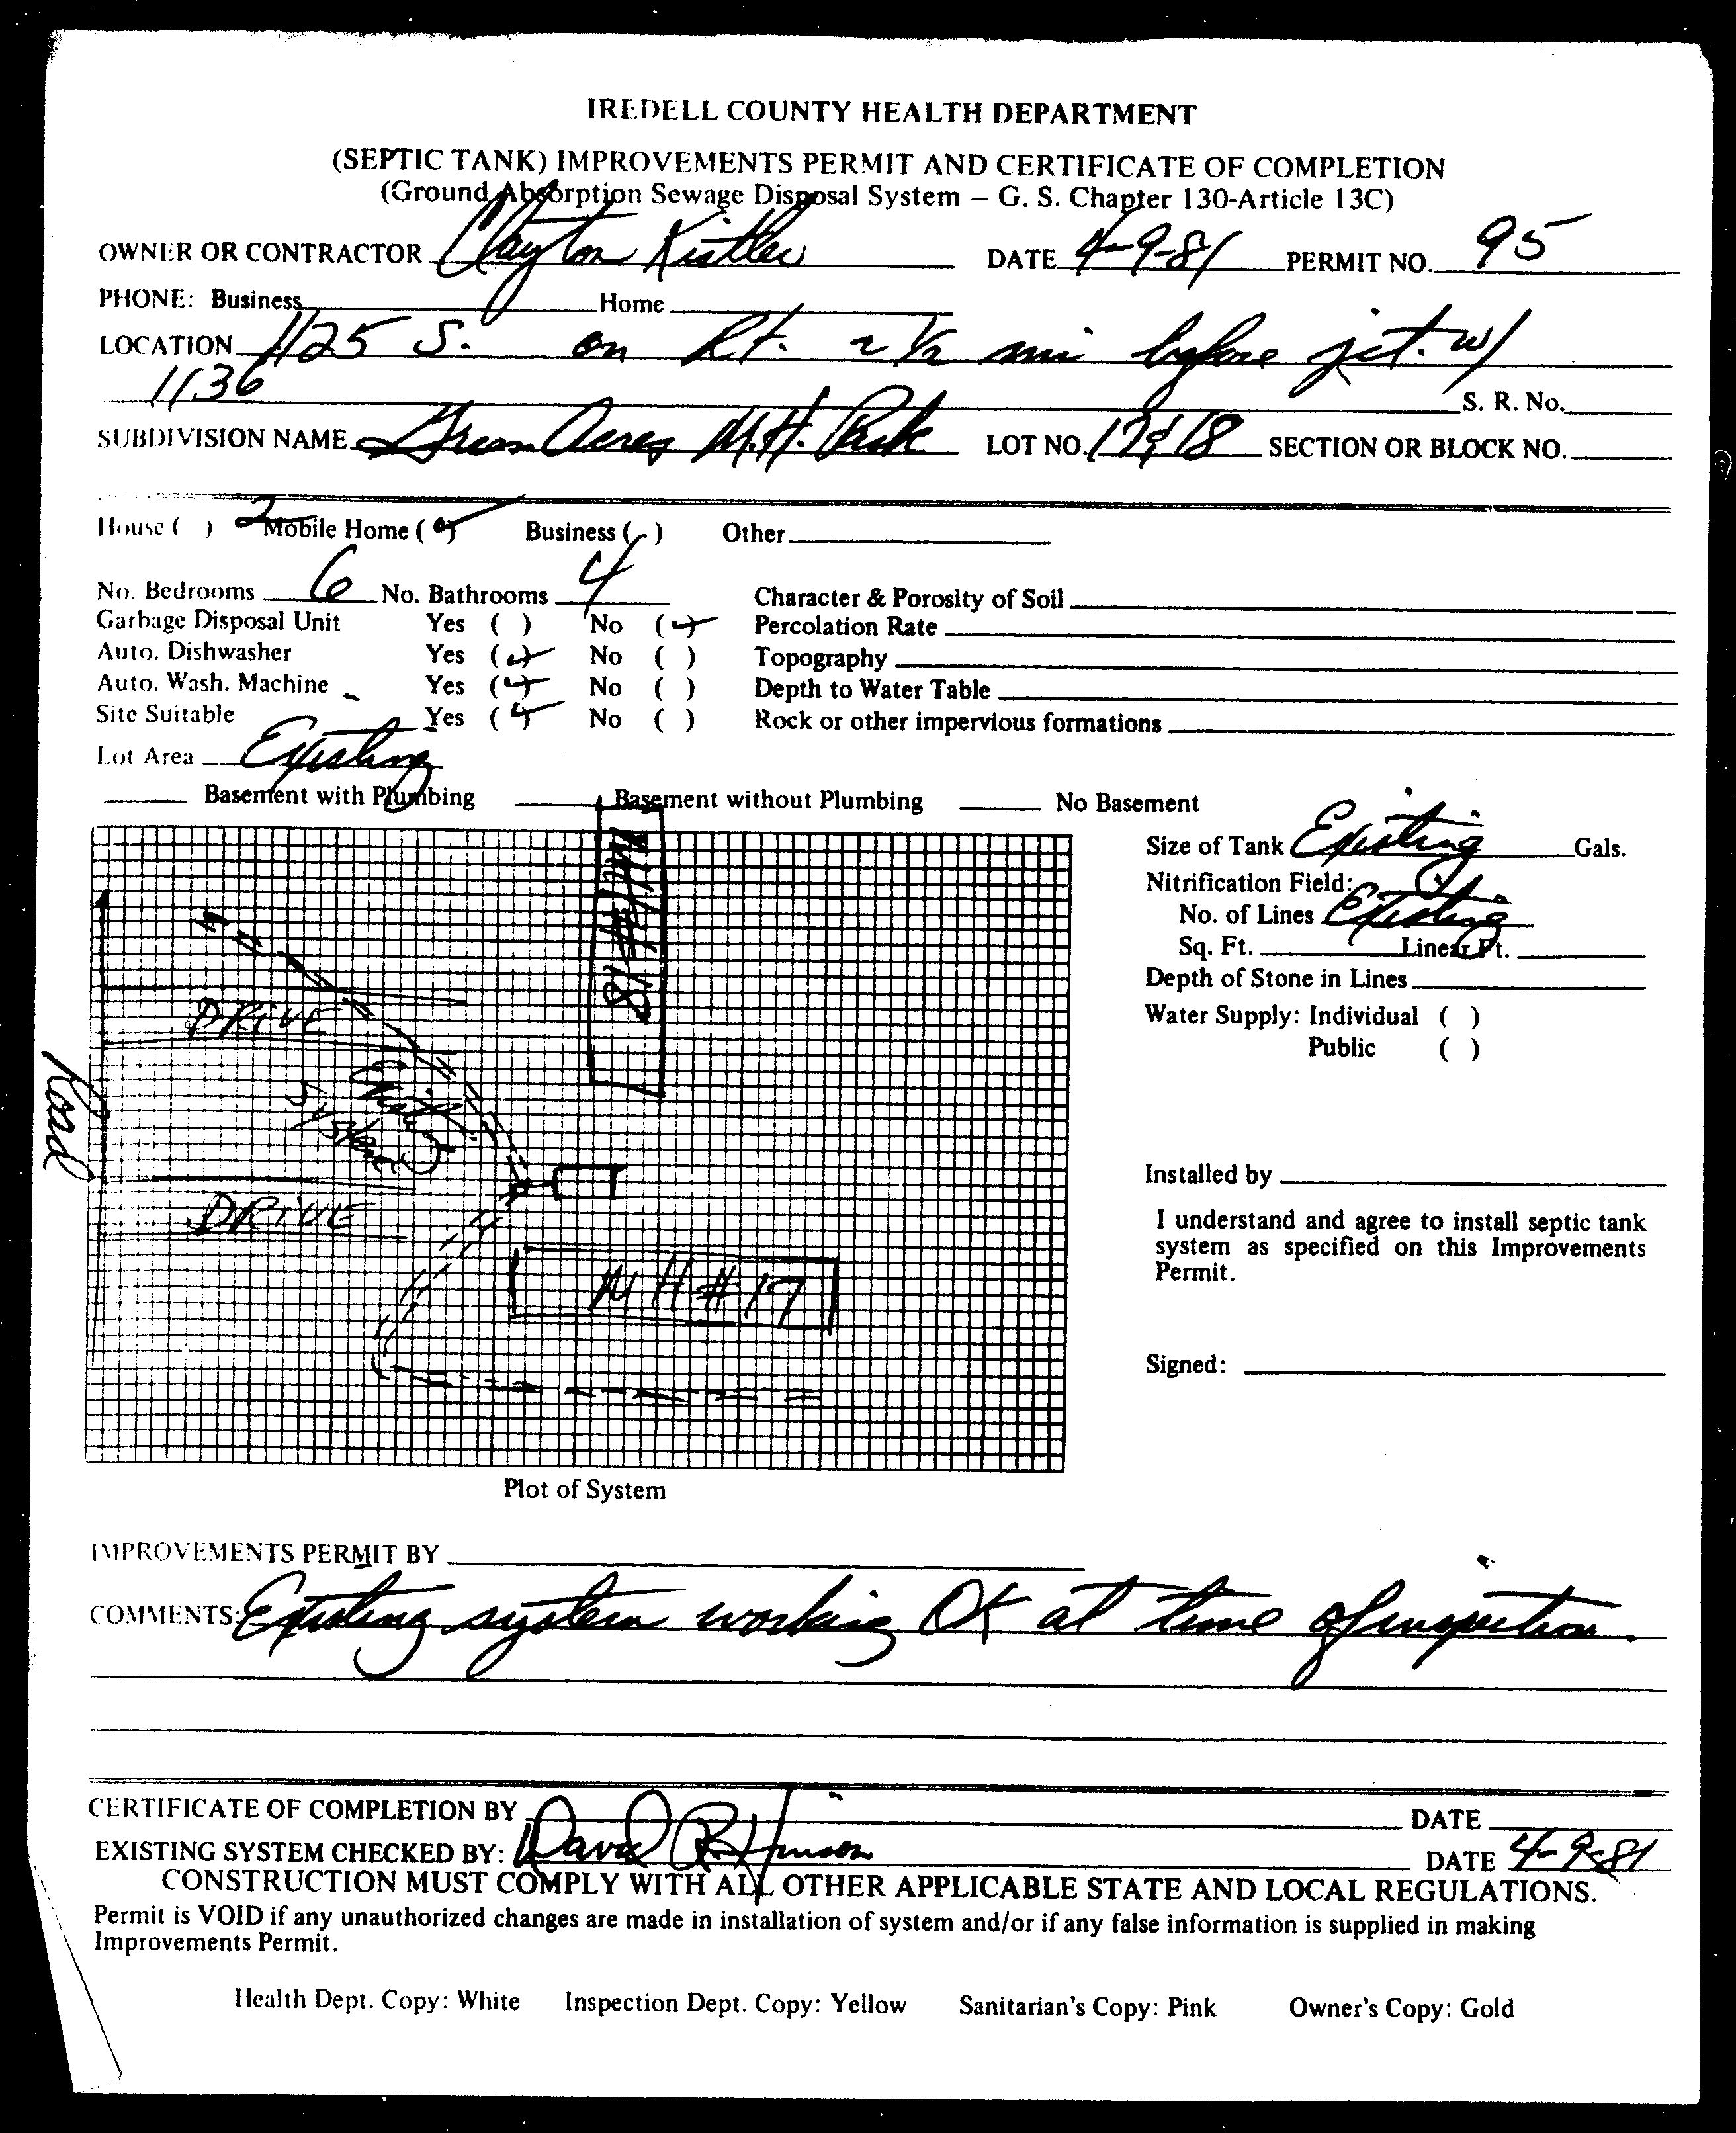 IREDELL COUNTY HEALTH DEPARTMENT
(SEPTIC TANK) IMPROVEMENTS PERMIT AND CERTIFICATE OF COMPLETION
(Ground Absorption Sewage Disposal System – G. S. Chapter 130-Article 13C)
OWNER OR CONTRACTOR Clayton Kistler DATE 4-9-81 PERMIT NO. 95
PHONE: Business Home
LOCATION 1125 S. on Rt. ~ 1/2 mi before jct. w/
1136 S. R. No.
SUBDIVISION NAME Green Acres M.H. Park LOT NO. 17 & 18 SECTION OR BLOCK NO.
House ( ) 2 Mobile Home (✓) Business ( ) Other
No. Bedrooms 6 No. Bathrooms 4 Character & Porosity of Soil
Garbage Disposal Unit Yes ( ) No (✓) Percolation Rate
Auto. Dishwasher Yes (✓) No ( ) Topography
Auto. Wash. Machine Yes (✓) No ( ) Depth to Water Table
Site Suitable Yes (✓) No ( ) Rock or other impervious formations
Lot Area Existing
Basement with Plumbing Basement without Plumbing No Basement
Size of Tank Existing Gals.
Nitrification Field:
No. of Lines Existing
Sq. Ft. Linear Ft.
Depth of Stone in Lines
Water Supply: Individual ( )
Public ( )
MH#18
DRIVE
Existing
System
Road
DRIVE
MH#17
Installed by
I understand and agree to install septic tank
system as specified on this Improvements
Permit.
Signed:
Plot of System
IMPROVEMENTS PERMIT BY
COMMENTS: Existing system working OK at time of inspection.
CERTIFICATE OF COMPLETION BY DATE
EXISTING SYSTEM CHECKED BY: David R. Hinson DATE 4-9-81
CONSTRUCTION MUST COMPLY WITH ALL OTHER APPLICABLE STATE AND LOCAL REGULATIONS.
Permit is VOID if any unauthorized changes are made in installation of system and/or if any false information is supplied in making
Improvements Permit.
Health Dept. Copy: White Inspection Dept. Copy: Yellow Sanitarian's Copy: Pink Owner's Copy: Gold